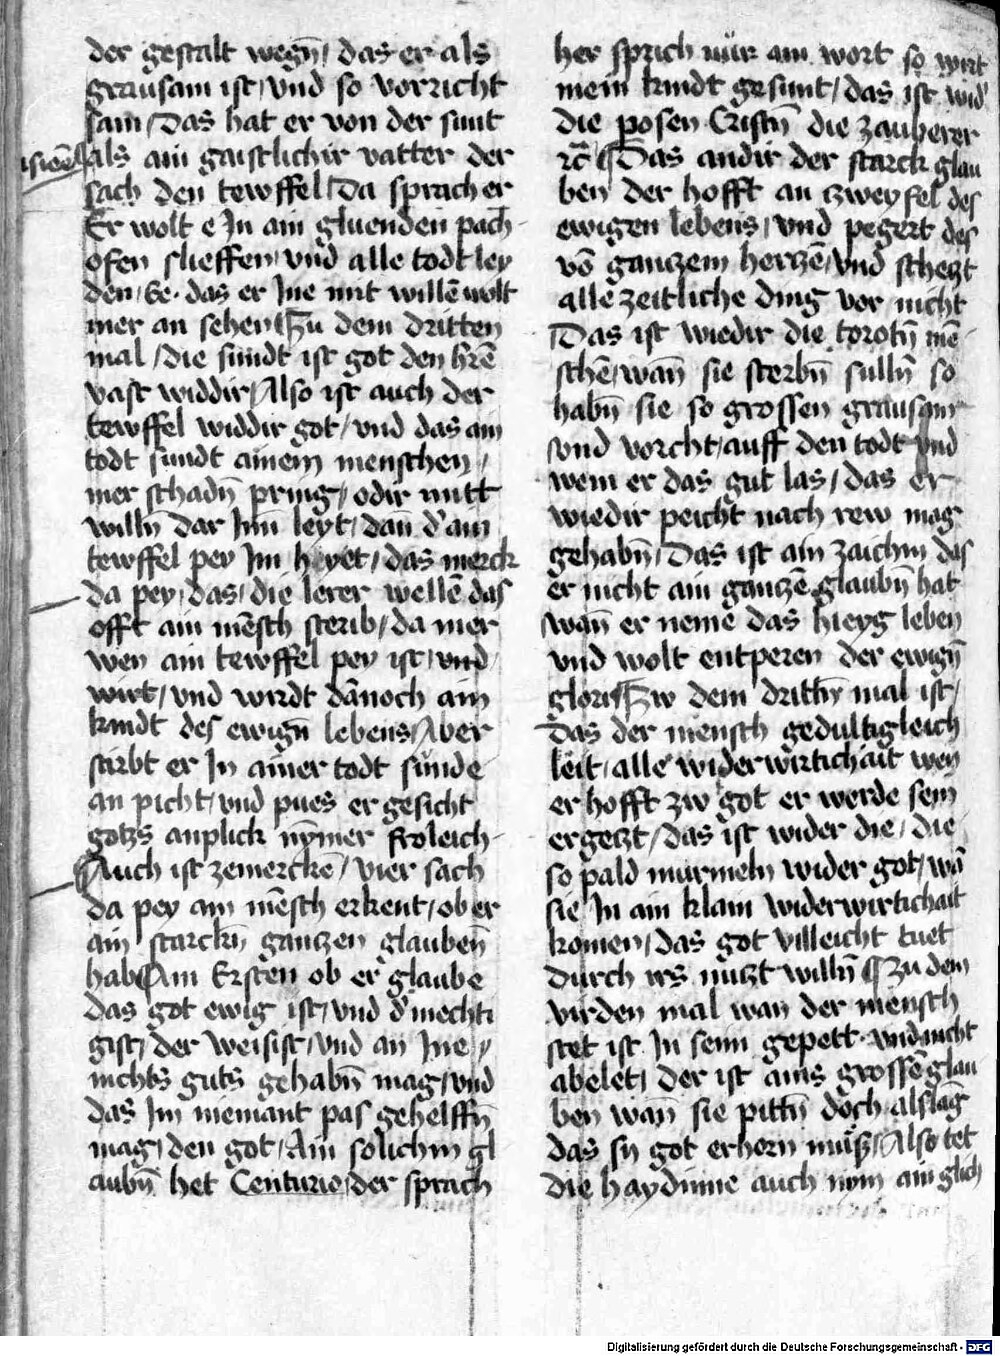 der gestalt wegñ / das er als
grausam ist / vnd so vorricht
sam / Das hat er von der sunt
als ain gaistlichir vatter der
sach den tewffel / Da sprach er
Er wolt e In ain gluenden pach
ofen slieffen / vnd alle todt ley
den / Ee das er Ine mit willē wolt
mer an sehen / Zu dem dritten
mal / die sundt ist got den h̃rē
vast widdir / Also ist auch der
tewffel widdir got / vnd das ain
todt sundt ainem menschen /
mer schadñ pring / odir mitt
willñ dar Inn leyt / dañ d' ain
tewffel pey Im h yet / das merck
da pey / das / die lerer wellē das
offt ain mēsch sterib / da mer
wen ain tewffel pey ist / vnd
wirt / vnd wirdt dānoch ain
kindt des ewigñ lebens / Aber
stirbt er In ainer todt sünde
an picht / vnd pues er gesicht
gotzs anplick nȳmer froleich
Auch ist zemerckē / vier sach
da pey ain mēsch erkent / ob er
ain starckñ ganczen glaubēn
hab / Am Ersten ob er glaube
das got ewig ist / vnd d' mechti
gist / der weisist / vnd an Ine /
nichts guts gehabñ mag / vnd
das Im niemant pas gehelffñ
mag / den got / Ain solichm gl
aubñ het Centurio / der sprach
her sprich nür ain wort so wirt
mein kindt gesunt / das ist wid'
die posen Cristñ die zauberer
rc̃ / Das andir der starck glau
ben der hofft an zweyfel des
ewigen lebens / vnd pegert des
vō ganczem herczē / vnd scheczt
alle zeitliche ding vor nicht
Das ist wiedir die torotñ mē
schē / wañ sie sterbñ sullñ so
habñ sie so grossen grausam
vnd vorcht / auff den todt vnd
wem er das gut las / das er
wiedir peicht nach rew mag
gehabñ / Das ist ain zaichm das
er nicht ain ganczē glaubñ hat
wañ er neme das hieyg leben
vnd wolt entperen der ewigñ
glori / Zw dem drittñ mal ist /
Das der mensch gedultigleich
leit / alle widerwirtichait wen
er hofft zw got er werde sein
ergeczt / das ist wider die / die
so pald murmeln wider got / wā
sie In ain klain widerwirtichait
komen / das got villeicht tuet
durch irs nuczt willñ / Zu dem
virden mal wan der mensch
stet ist In seim gepett / vnd nicht
abelet / der ist ains grossē glau
ben wañ sie pittñ doch als lāg
das sy got erhorn mus / Also tet
die haydinne auch nym ain glich
Digitalisierung gefördert durch die Deutsche Forschungsgemeinschaft - DFG